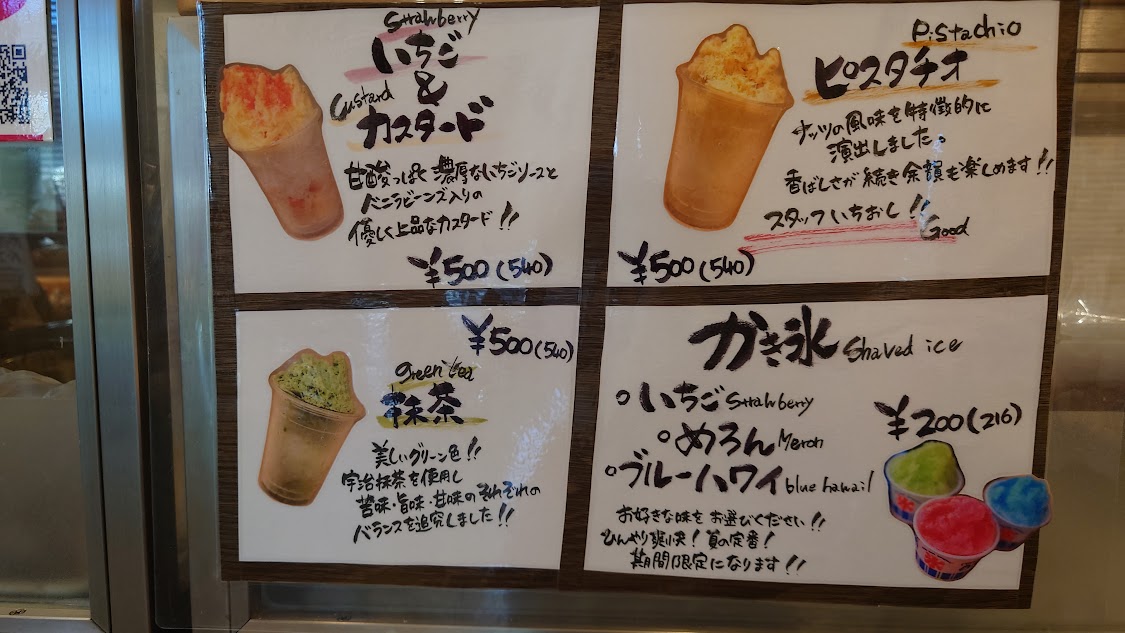 Strawberry
いちご
&
Custard
カスタード
甘酸っぱく濃厚ないちごソースと
バニラビーンズ入りの
優しく上品なカスタード!!
¥500(540)
Pistachio
ピスタチオ
ナッツの風味を特徴的に
演出しました。
香ばしさが続き余韻も楽しめます!!
スタッフいちおし!!
Good
¥500(540)
¥500(540)
green tea
抹茶
美しいグリーン色!!
宇治抹茶を使用し
苦味・旨味・甘味のそれぞれの
バランスを追究しました!!
かき氷 Shaved ice
○いちご Strawberry
○めろん Meron
○ブルーハワイ blue hawail
¥200(216)
お好きな味をお選びください!!
ひんやり爽快!夏の定番!
期間限定になります!!